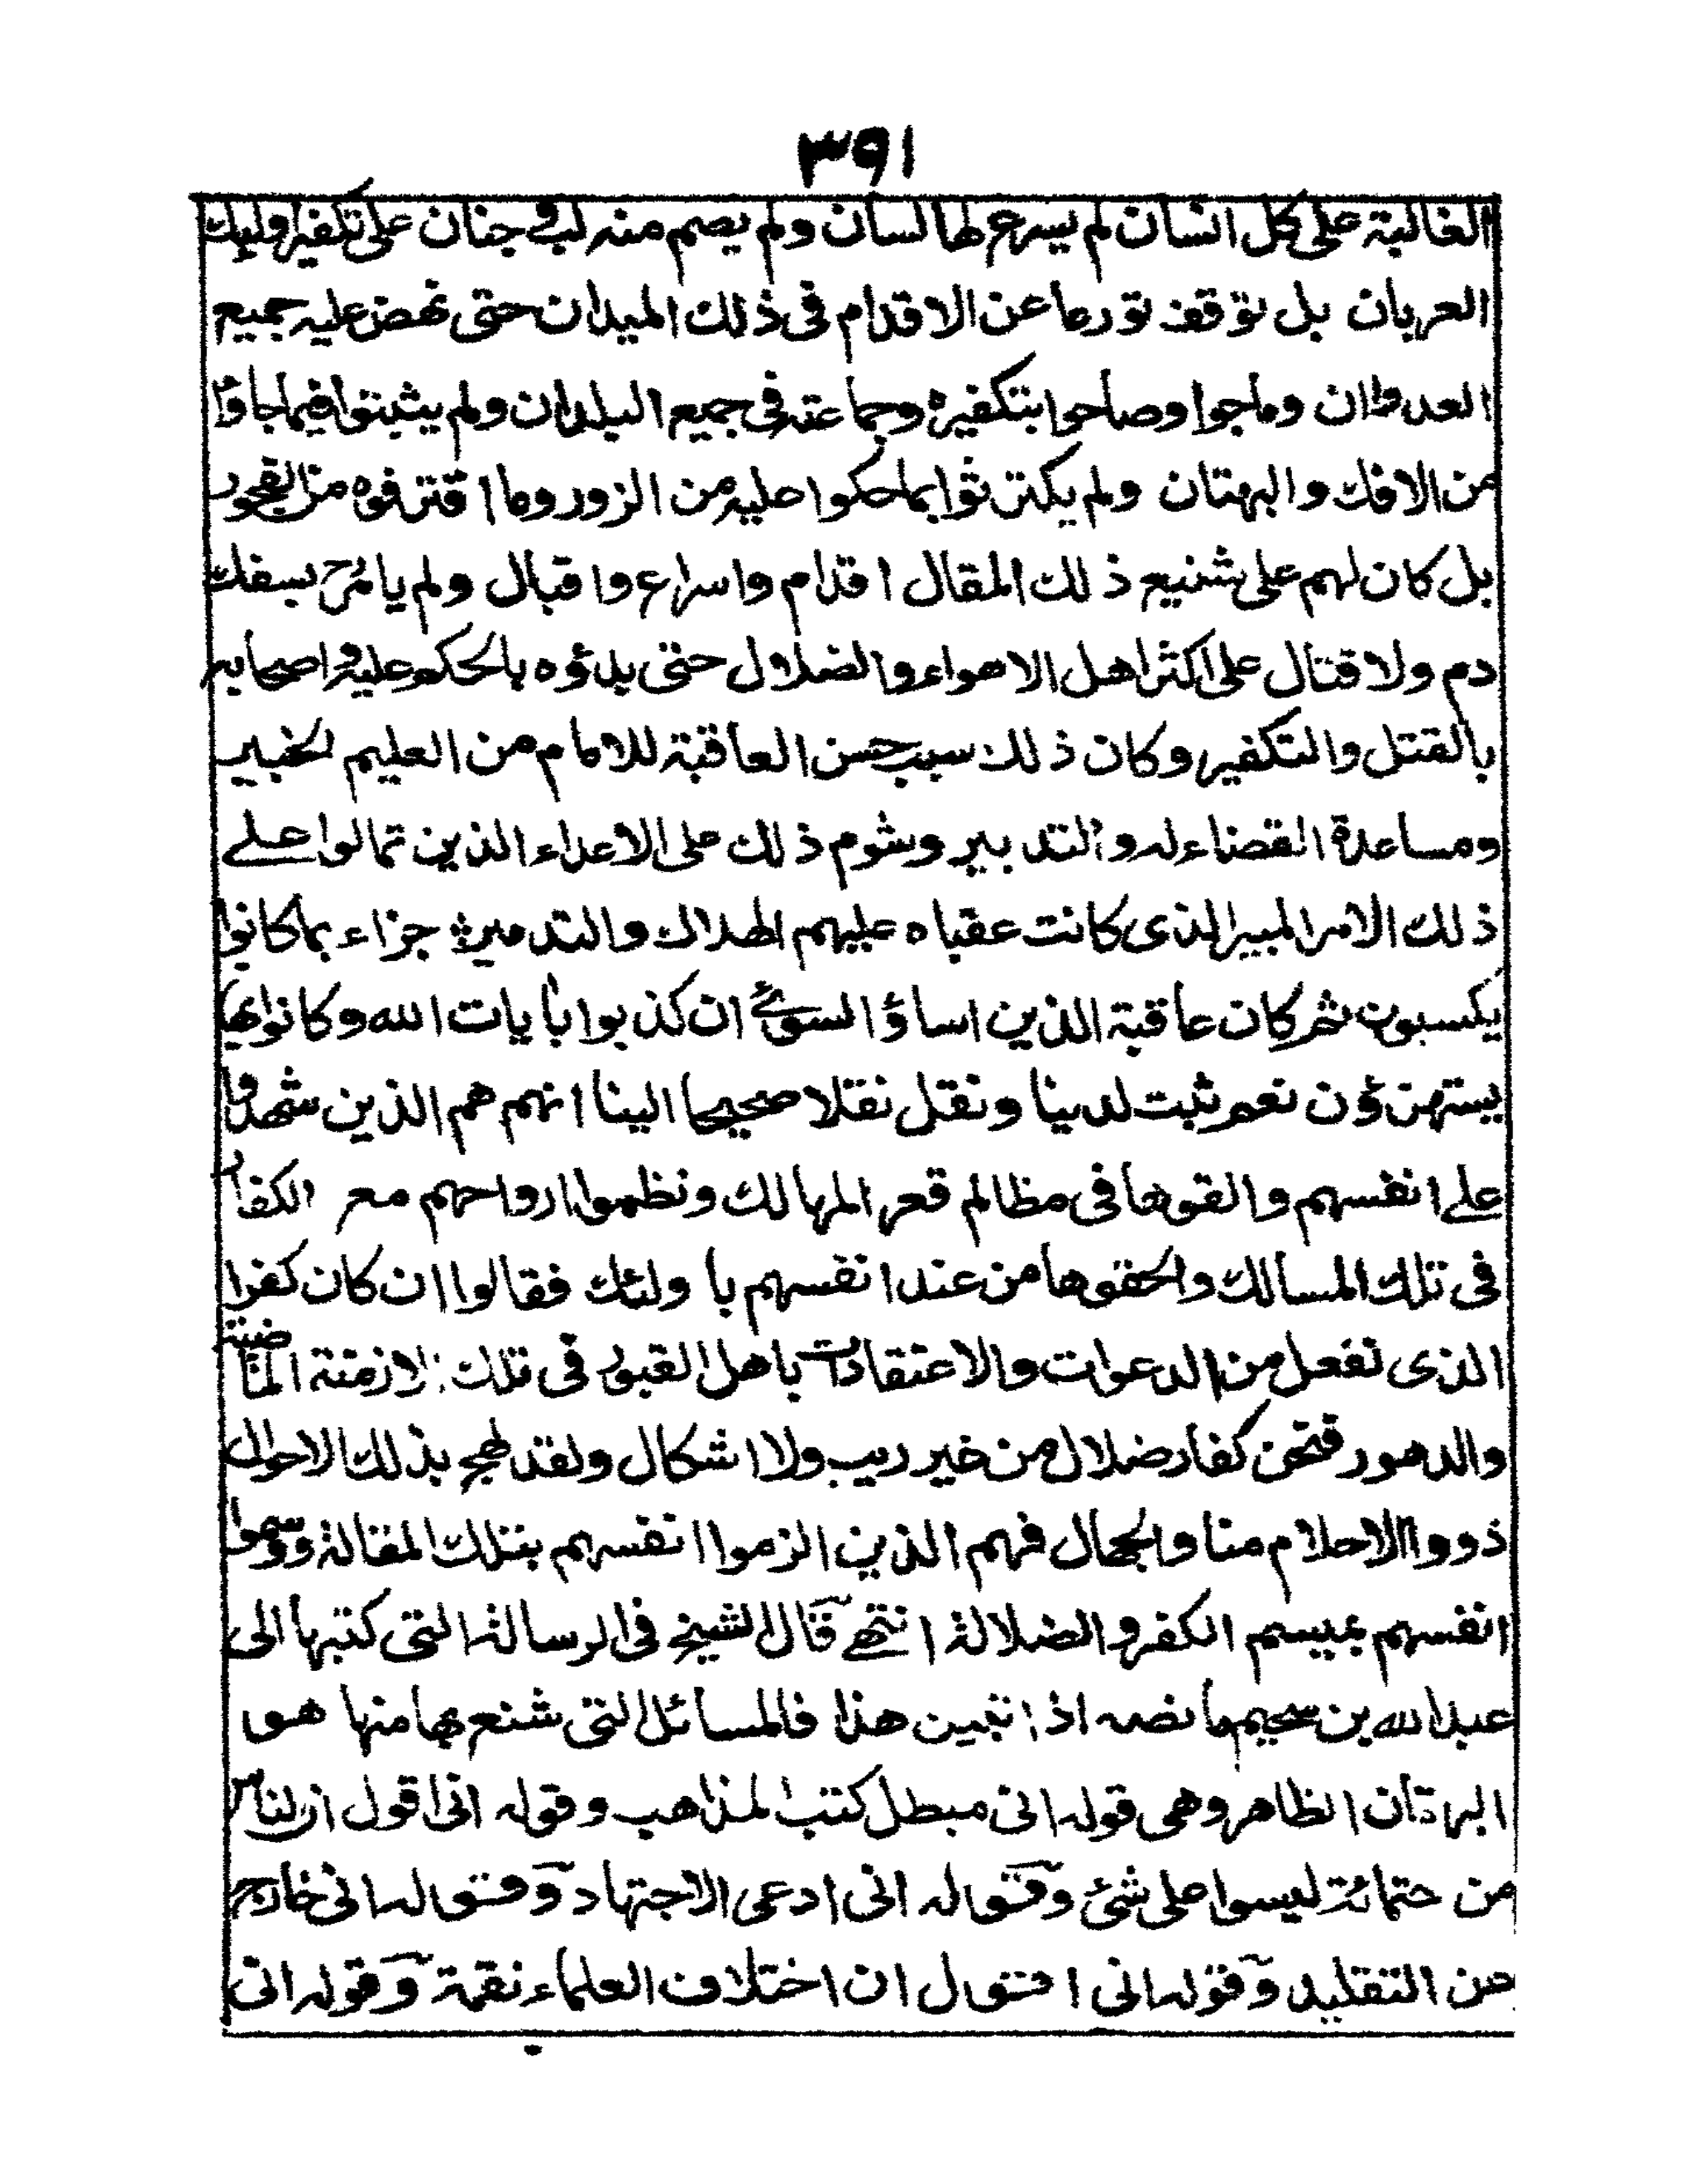 ٣٩١
الغالبة على كل انسان لم يسرع لها لسان ولم يصمم منه لب وجنان على تكفير اولئك
العربان بل توقف تورعا عن الاقدام فى ذلك الميدان حتى نهض عليه جميع
العدوان وماجوا وصاحوا بتكفيره وجماعته فى جميع البلدان ولم يثبتوا فيما جاؤا
من الافك والبهتان ولم يكترثوا بما حكوا عليه من الزور وما اقترفوه من الفجور
بل كان لهم على شنيع ذلك المقال اقدام واسراع واقبال ولم يامر ح بسفك
دم ولا قتال على اكثر اهل الاهواء والضلال حتى بدؤه بالحكم عليه واصحابه
بالقتل والتكفير وكان ذلك سبب حسن العاقبة للامام من العليم الخبير
ومساعدة القضاء له والتدبير وشوم ذلك على الاعداء الذين تمالوا علے
ذلك الامر المبير الذى كانت عقباه عليهم الهلاك والتدمير جزاء بما كانوا
يكسبون ثم كان عاقبة الذين اساؤا السوئے ان كذبوا بايات الله وكانوا بها
يستهزؤن نعم ثبت لدينا ونقل نقلا صحيحا الينا انهم هم الذين شهدوا
علے انفسهم والقوها فى مظالم قعر المهالك ونظموا ارواحهم مع الكفار
فى تلك المسالك والحقوها من عند انفسهم باولئك فقالوا ان كان كفرا
الذى نفعل من الدعوات والاعتقادات باهل القبور فى تلك الازمنة الماضية
والدهور فنحن كفار ضلال من غير ريب ولا اشكال ولقد لهج بذلك الاحوال
ذووا الاحلام منا والجهال فهم الذين الزموا انفسهم بتلك المقالة ووسموا
انفسهم بميسم الكفر والضلالة انتهے قال الشيخ فى الرسالة التى كتبها الى
عبد الله بن سحيم ما نصه اذا تبين هذا فالمسائل التى شنع بها منها هو
البهتان الظاهر وهى قوله انى مبطل كتب المذاهب وقوله انى اقول ان الناس
من ستمائة ليسوا على شئ وقوله انى ادعى الاجتهاد وقوله انى خارج
عن التقليد وقوله انى اقول ان اختلاف العلماء نقمة وقوله انى